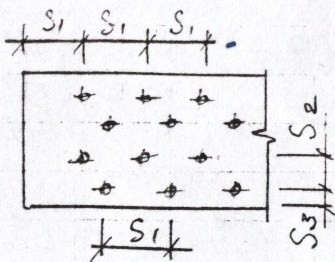 S1 S1 S1
S2
S1
S3